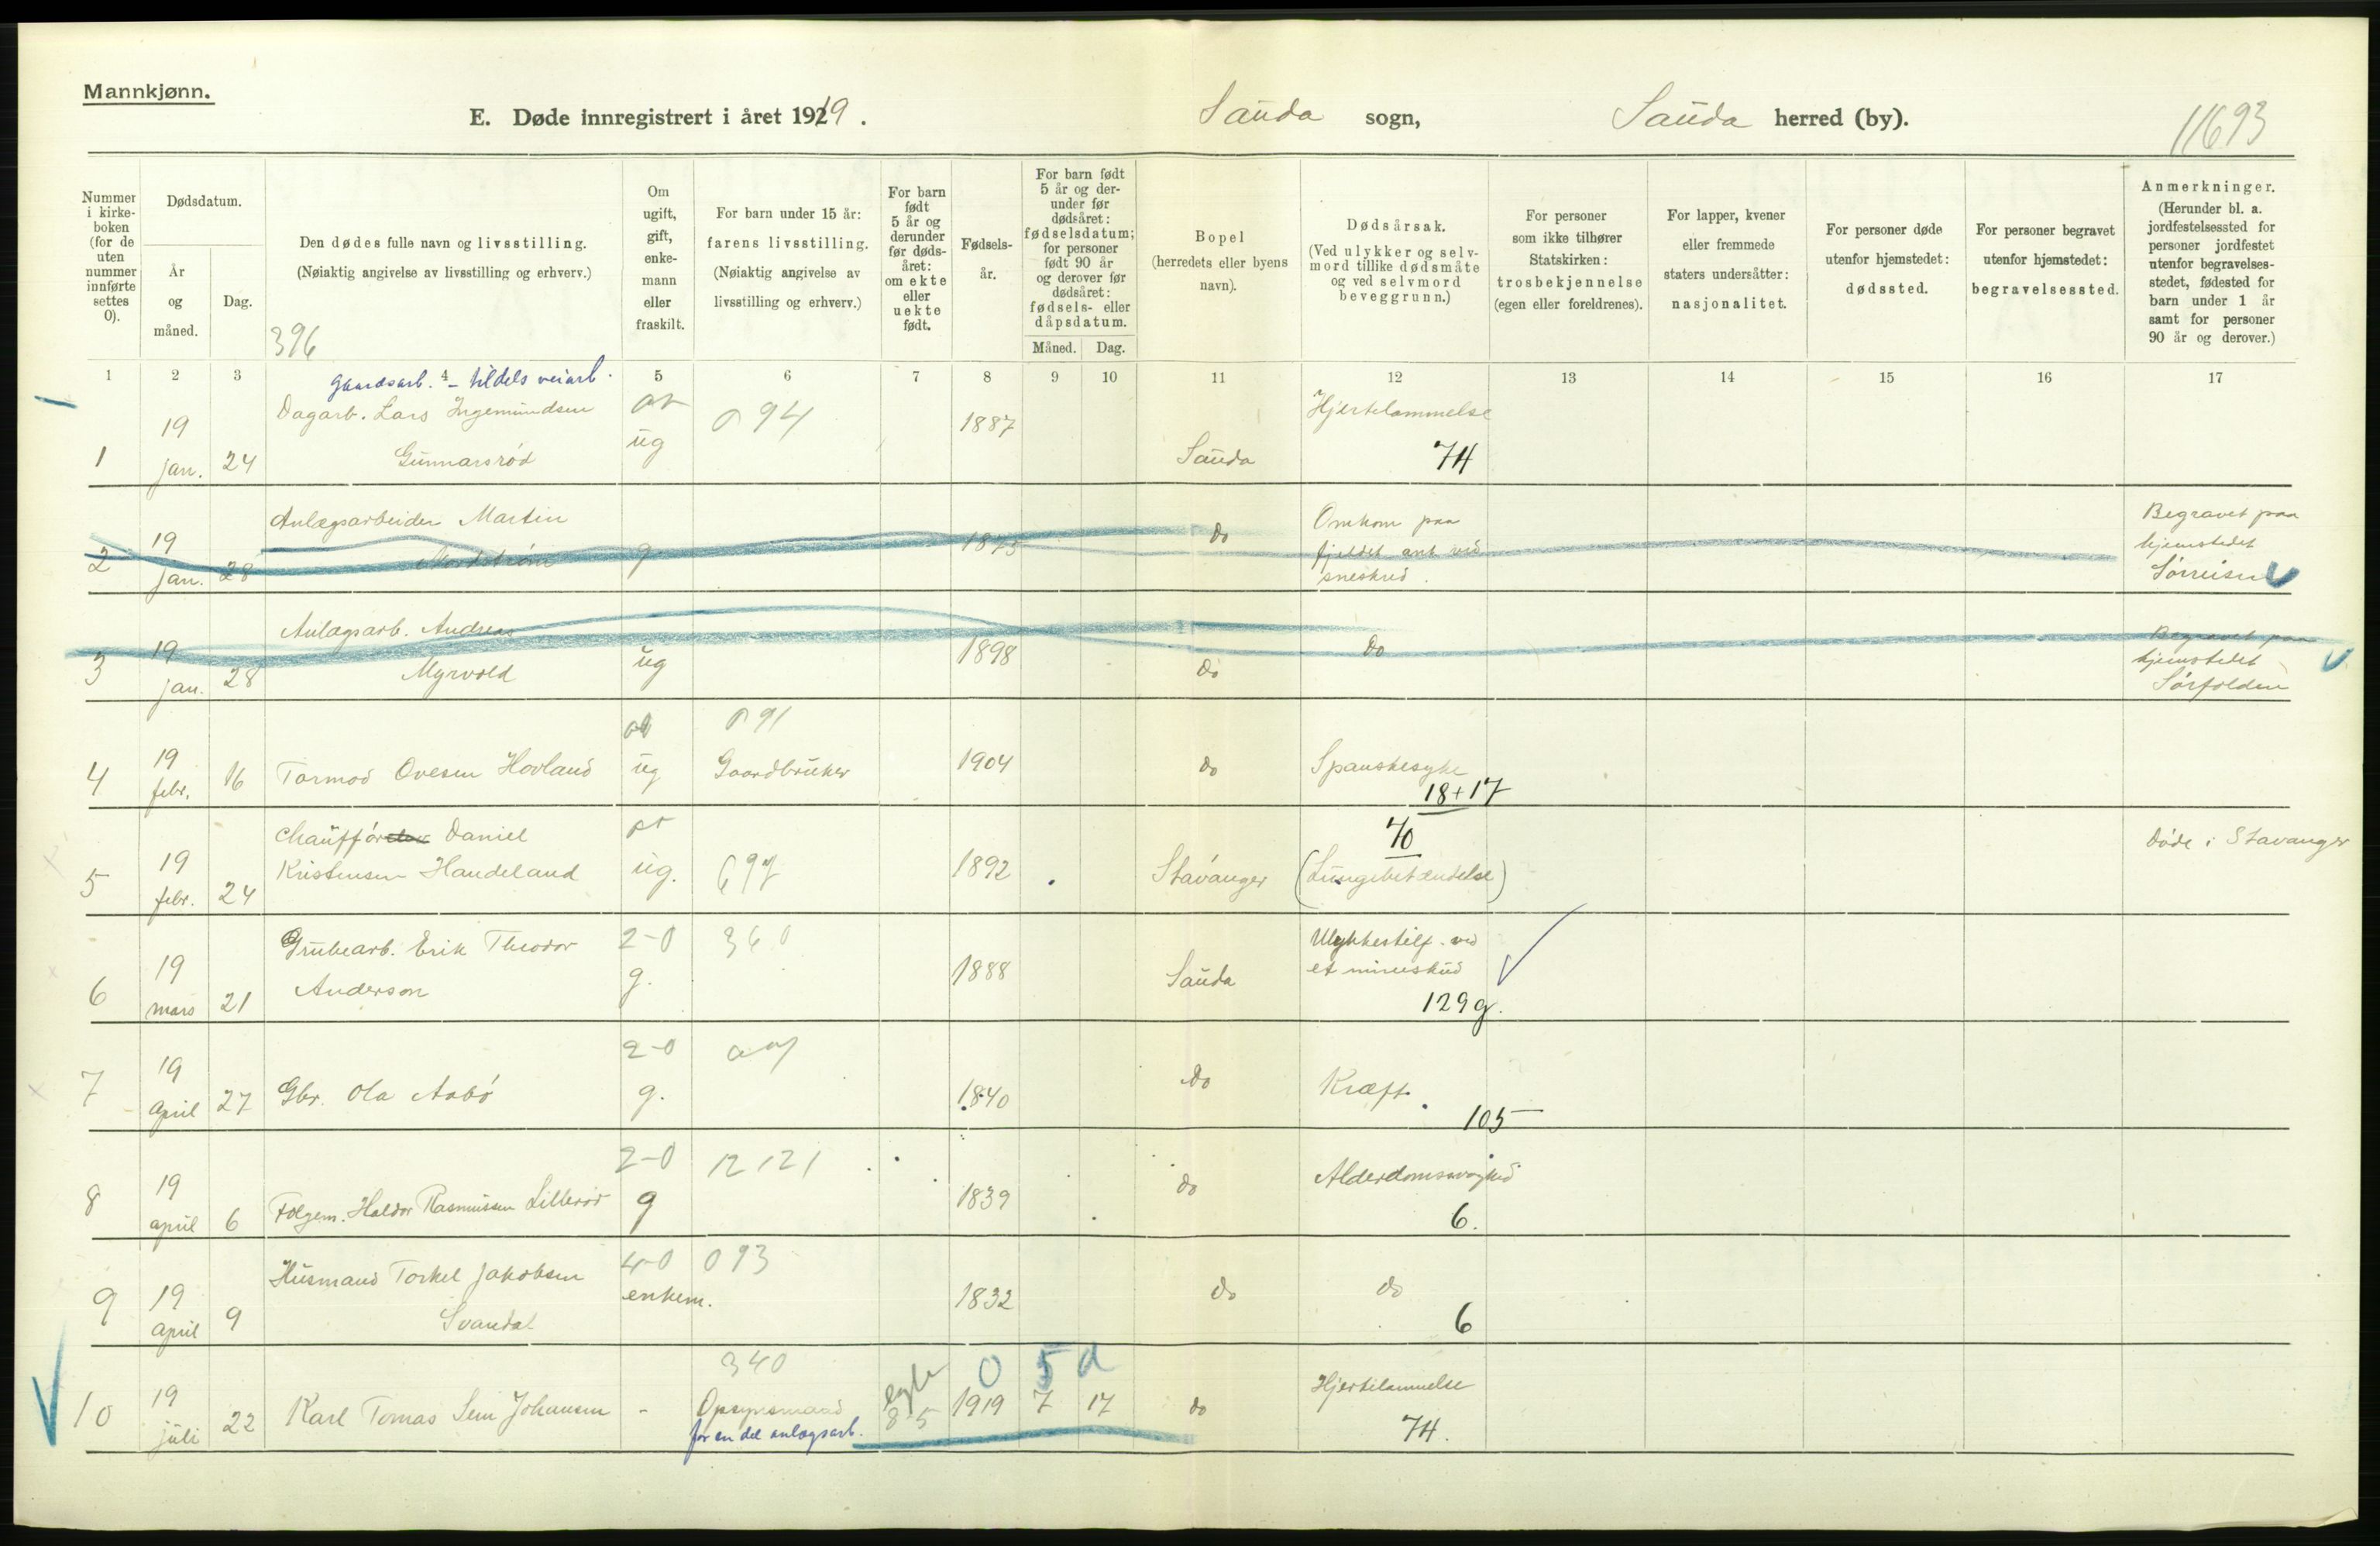 Mannkjønn.
E. Døde innregistrert i året 1919. Sauda sogn, Sauda herred (by). 11693
Nummer i kirkeboken (for de uten nummer innførte settes 0).
Dødsdatum.
År og måned.
Dag.
Den dødes fulle navn og livsstilling.
(Nøiaktig angivelse av livsstilling og erhverv.)
396
Om ugift, gift, enkemann eller fraskilt.
For barn under 15 år: farens livsstilling.
(Nøiaktig angivelse av livsstilling og erhverv.)
For barn født 5 år og derunder før dødsåret: om ekte eller uekte født.
Fødselsår.
For barn født 5 år og derunder før dødsåret: fødselsdatum; for personer født 90 år og derover før dødsåret: fødsels- eller dåpsdatum.
Måned. Dag.
Bopel
(herredets eller byens navn).
Dødsårsak.
(Ved ulykker og selvmord tillike dødsmåte og ved selvmord beveggrunn.)
For personer som ikke tilhører Statskirken: trosbekjennelse (egen eller foreldrenes).
For lapper, kvener eller fremmede staters undersåtter: nasjonalitet.
For personer døde utenfor hjemstedet: dødssted.
For personer begravet utenfor hjemstedet: begravelsessted.
Anmerkninger.
(Herunder bl. a. jordfestelsessted for personer jordfestet utenfor begravelsesstedet, fødested for barn under 1 år samt for personer 90 år og derover.)
1 2 3 4 5 6 7 8 9 10 11 12 13 14 15 16 17
Gaardsarb. - tildels veiarb.
1 19 jan. 24 Dagarb. Lars Ingemundsen Gunnarsrød ug 094 1887 Sauda Hjertelammelse 74
2 19 jan. 28 Anlægsarbeider Martin Nordstrøm g 1875 do Omkom paa fjeldet ant. ved sneskred. Begravet paa hjemstedet Sørreisen
3 19 jan. 28 Anlægsarb. Andreas Myrvold ug 1898 do do Begravet paa hjemstedet Sørfolden
4 19 febr. 16 Tormod Ovesen Hovland ug 091 Gaardbruker 1904 do Spanskesyke 18+17
5 19 febr. 24 Chauffør Daniel Kristensen Handeland ug. 697 1892 Stavanger 70 (Lungebetændelse) Døde i Stavanger
6 19 mars 21 Grubearb. Erik Theodor Anderson 2-0 g. 360 1888 Sauda Ulykkestilf. ved et mineskud 129g.
7 19 april 27 Gbr. Ola Aabø 2-0 g. 1840 do Kræft. 105
8 19 april 6 Følgem. Haldor Rasmussen Lillerød 2-0 g 12121 1839 do Alderdomssvaghed 6.
9 19 april 9 Husmand Torkel Jakobsen Svandal 4-0 enkem. 093 1832 do do 6
10 19 juli 22 Karl Tomas Sem Johansen - 340 Opsynsmand for en del anlægsarb. egte 85 1919 7 17 0 5 d do Hjertelammelse 74.